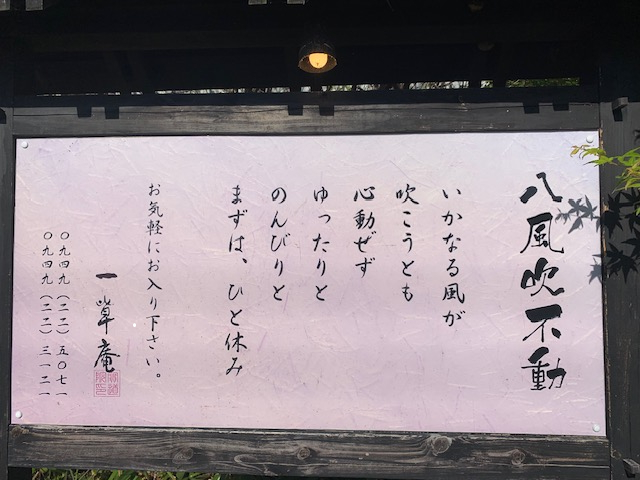 八風吹不動
いかなる風が
吹こうとも
心動ぜず
ゆったりと
のんびりと
まずは、ひと休み
お気軽にお入り下さい。
一草庵
〇九四九(二二)五〇七一
〇九四九(二二)三一二一